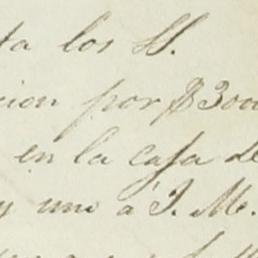 ta los SS.
cion por $3000
en la casa de
y uno á J. M.